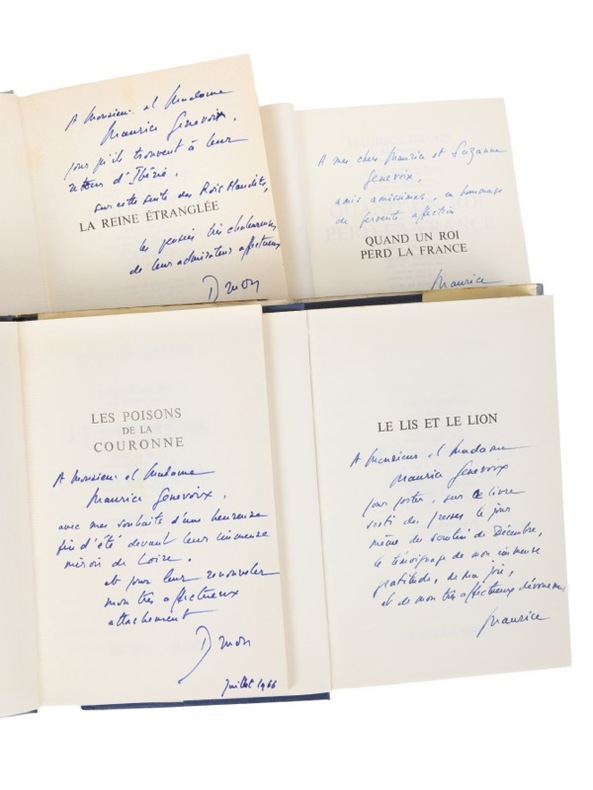 A Monsieur et Madame
Maurice Genevoix,
pour qu'ils trouvent à leur
retour d'Ibérie,
sur cette suite des Rois Maudits,
LA REINE ÉTRANGLÉE
les pensées très chaleureuses
de leur admirateur affectueux
Druon
A mes chers Maurice et Suzanne
Genevoix,
amis amissimes, en hommage
de fervente affection
QUAND UN ROI
PERD LA FRANCE
Maurice
LES POISONS
DE LA
COURONNE
A Monsieur et Madame
Maurice Genevoix,
avec mes souhaits d'une heureuse
fin d'été devant leur immense
miroir de Loire,
et pour leur renouveler
mon très affectueux
attachement
Druon
Juillet 1966
LE LIS ET LE LION
A Monsieur et Madame
Maurice Genevoix
pour porter, sur ce livre
sorti des presses le jour
même du scrutin de Décembre,
le témoignage de mon immense
gratitude, de ma joie,
et de mon très affectueux dévouement
Maurice